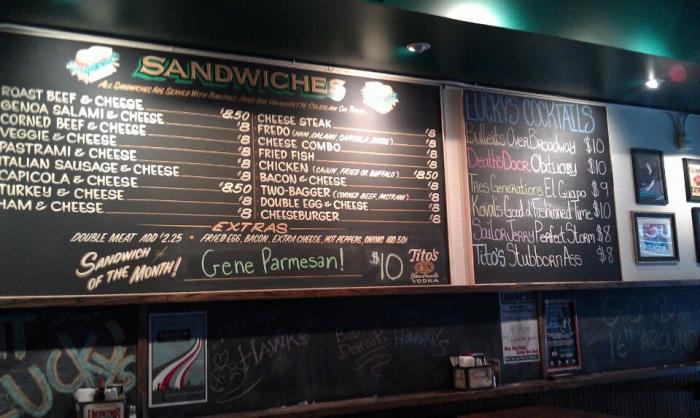 SANDWICHES
ALL SANDWICHES ARE SERVED WITH TOMATOES, FRIES AND VINAIGRETTE COLESLAW ON THEM.
ROAST BEEF & CHEESE $8.50
GENOA SALAMI & CHEESE $8
CORNED BEEF & CHEESE $8
VEGGIE & CHEESE $8
PASTRAMI & CHEESE $8
ITALIAN SAUSAGE & CHEESE $8
CAPICOLA & CHEESE $8.50
TURKEY & CHEESE $8
HAM & CHEESE $8
CHEESE STEAK $8
FREDO (HAM, SALAMI, CAPICOLA, $8
CHEESE COMBO $8
FRIED FISH $8
CHICKEN (CAJUN, FRIED OR BUFFALO) $8.50
BACON & CHEESE $8
TWO-BAGGER (CORNED BEEF, PASTRAMI) $8
DOUBLE EGG & CHEESE $8
CHEESEBURGER $8
EXTRAS
DOUBLE MEAT ADD $2.25 • FRIED EGG, BACON, EXTRA CHEESE, HOT PEPPERS, ONIONS ADD 50¢
SANDWICH OF THE MONTH!
Gene Parmesan!
$10
Tito's
Handmade
VODKA
LUCKY'S COCKTAILS
Bulleits Over Broadway $10
Death's Door Obituary $10
Tres Generations El Guapo $9
Koval's Good ol' Fashioned Time $10
Sailor Jerry Perfect Storm $8
Tito's Stubborn Ass $8
HAWKS